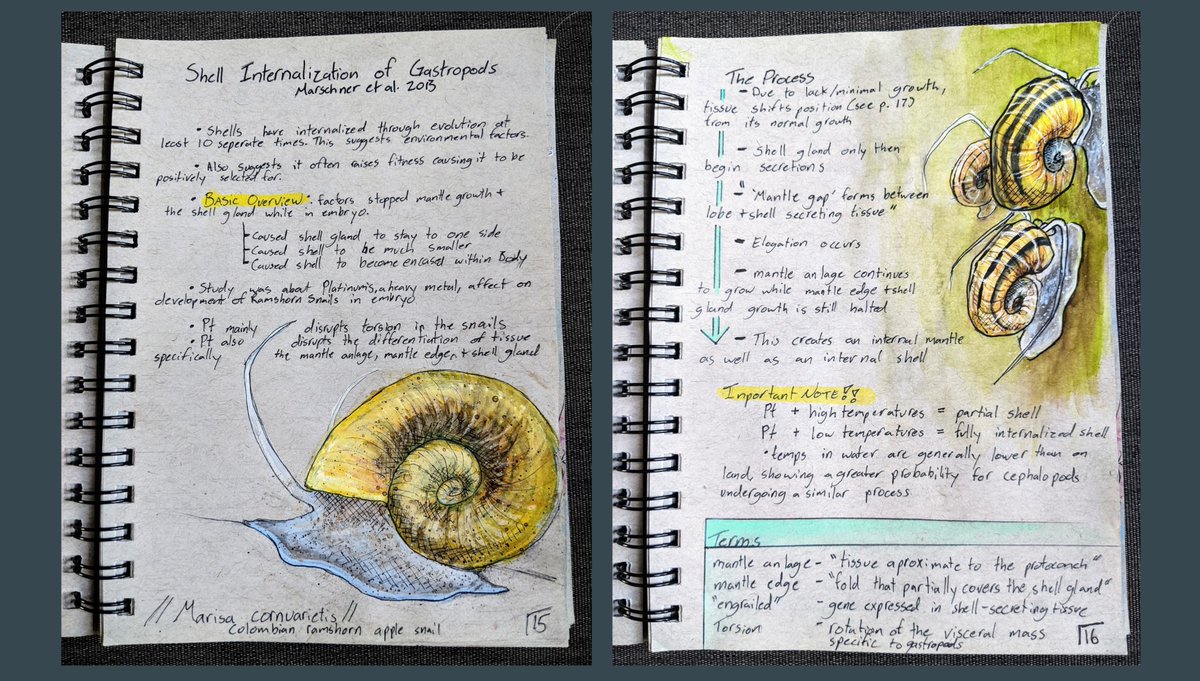 Shell Internalization of Gastropods
Marschner et al. 2013
• Shells have internalized through evolution at
least 10 seperate times. This suggests environmental factors.
• Also suggests it often raises fitness causing it to be
positively selected for.
• BASIC Overview: factors stopped mantle growth +
the shell gland while in embryo.
Caused shell gland to stay to one side
Caused shell to be much smaller
Caused shell to become encased within Body
• Study was about Platinum's, a heavy metal, affect on
development of Ramshorn Snails in embryo
• Pt mainly disrupts torsion in the snails
• Pt also disrupts the differentiation of tissue
specifically the mantle anlage, mantle edge, + shell gland
// Marisa cornuarietis //
Colombian ramshorn apple snail
15
The Process
- Due to lack/minimal growth,
tissue shifts position (see p. 17)
from its normal growth
- Shell gland only then
begin secretions
- "'Mantle gap' forms between
lobe + shell secreting tissue"
- Elogation occurs
- mantle anlage continues
to grow while mantle edge + shell
gland growth is still halted
- This creates an internal mantle
as well as an internal shell
Important NOTE!!
Pt + high temperatures = partial shell
Pt + low temperatures = fully internalized shell
• temps in water are generally lower than on
land, showing a greater probability for cephalopods
undergoing a similar process
Terms
mantle anlage - "tissue aproximate to the protoconch"
mantle edge - "fold that partially covers the shell gland"
"engrailed" - gene expressed in shell-secreting tissue
Torsion - rotation of the visceral mass
specific to gastropods
16